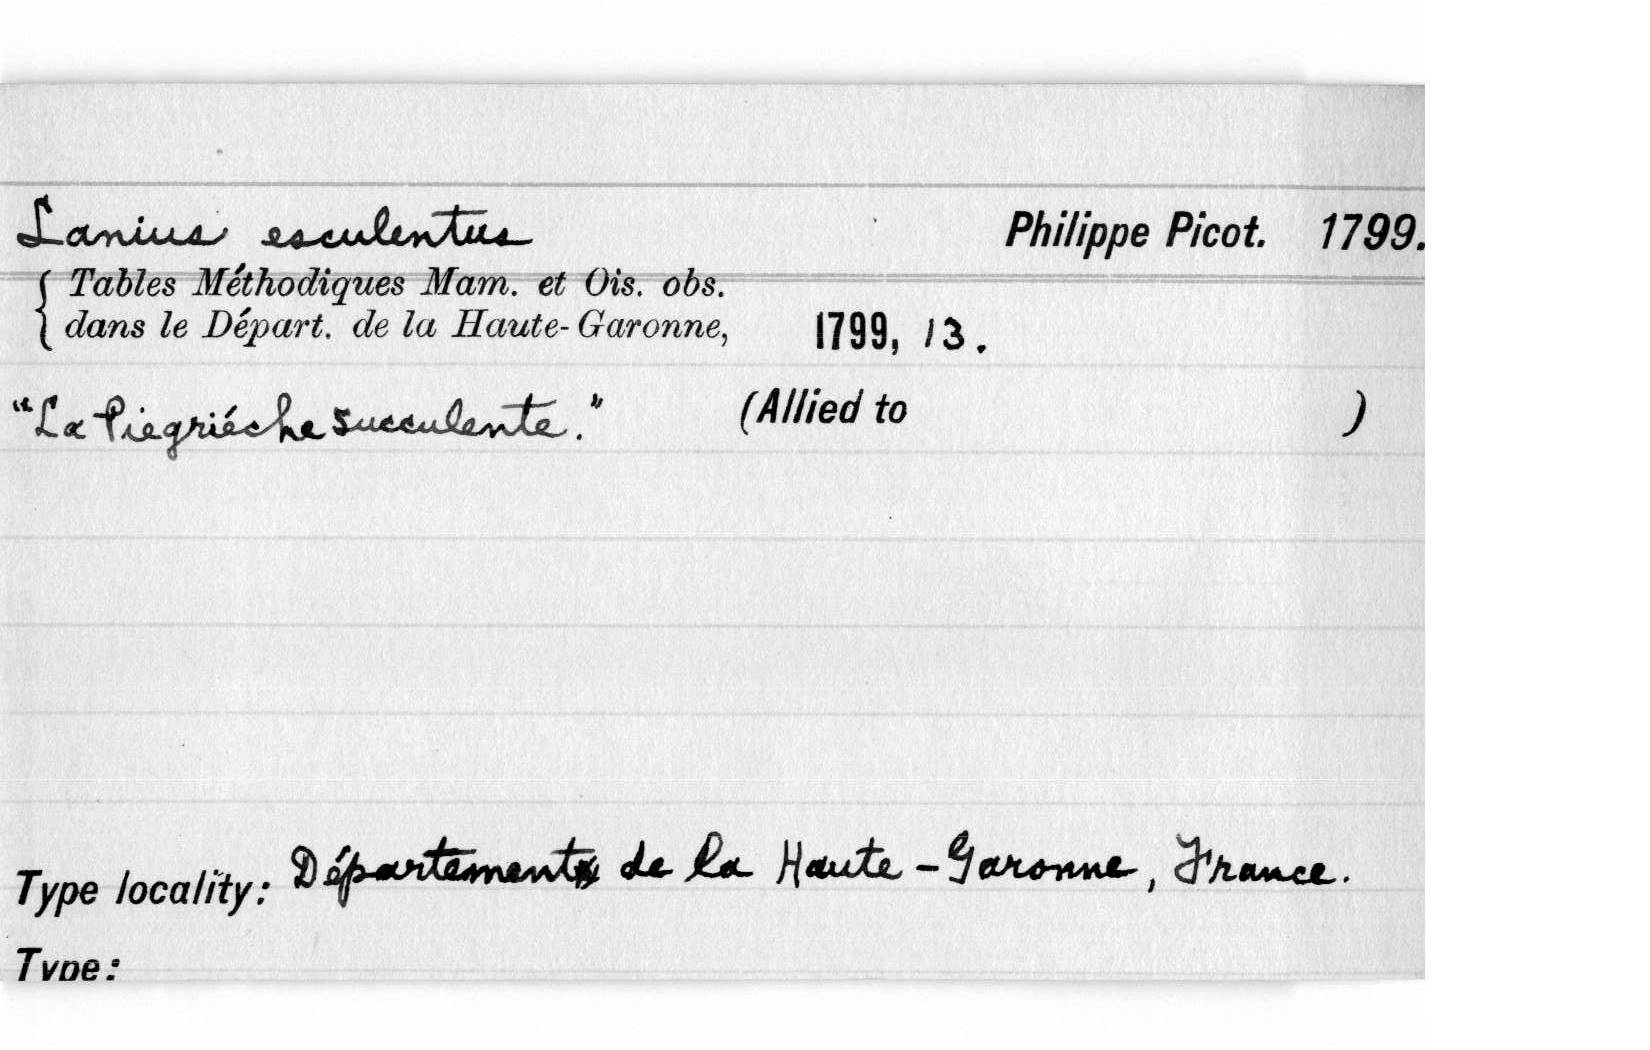 Lanius esculentus Philippe Picot. 1799.
{ Tables Méthodiques Mam. et Ois. obs.
dans le Départ. de la Haute-Garonne, 1799, 13.
"La Piegriéche succulente." (Allied to )
Type locality: Département de la Haute-Garonne, France.
Type: